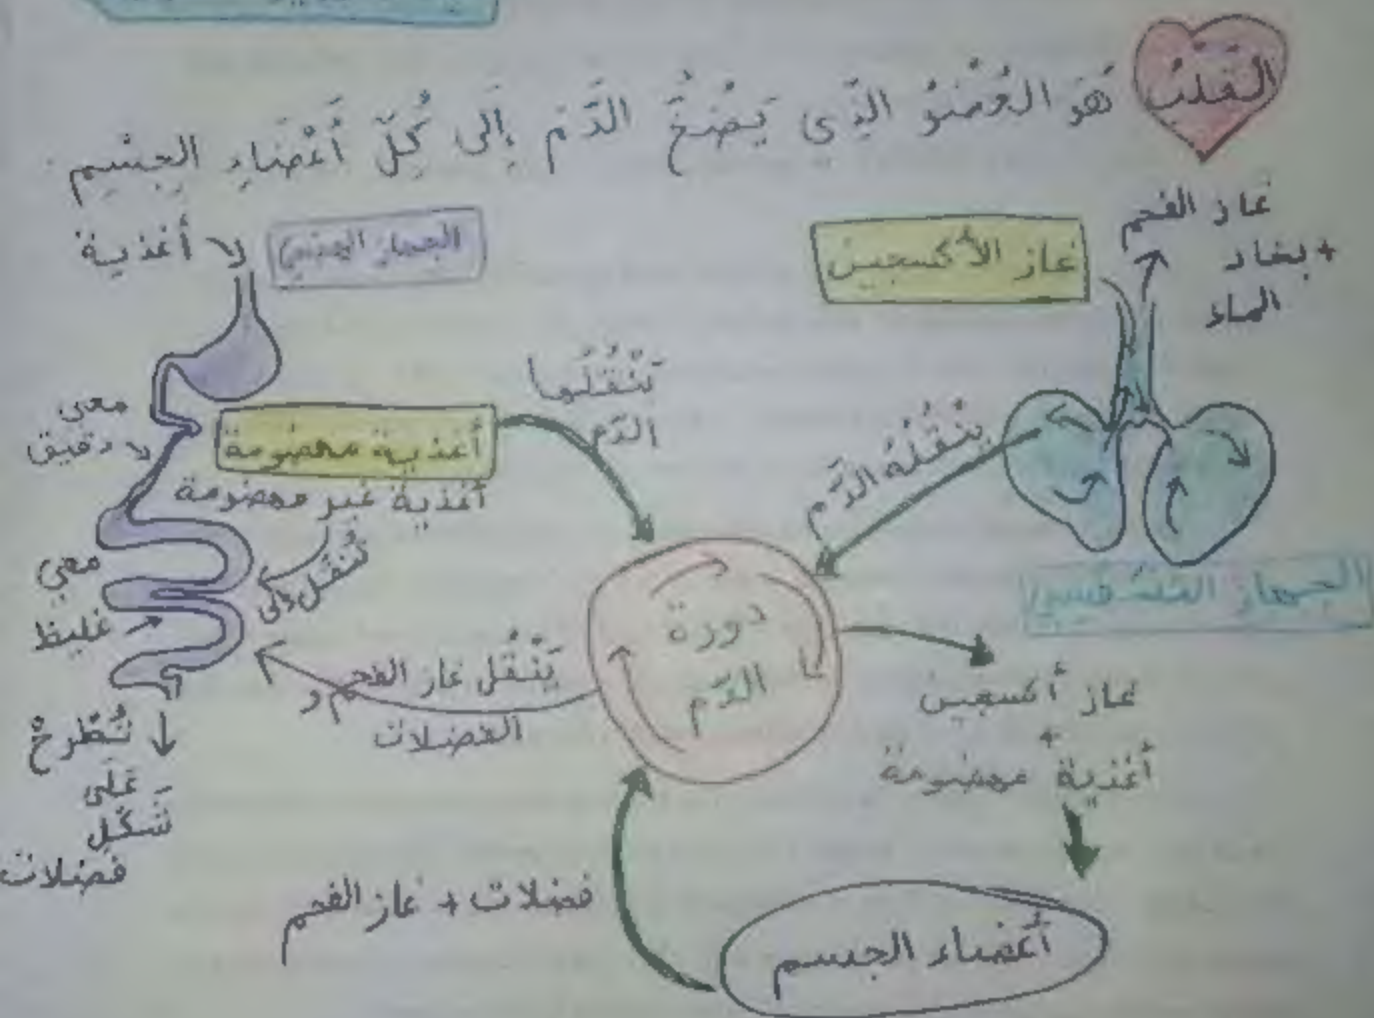 القَلْبُ هُوَ العُضْوُ الذِّي يَضُخُّ الدَّم إِلَى كُلِّ أَعْضَاءِ الجِسْمِ.
غاز الفحم
+ بخار
الماء
غاز الأكسجين
الجهاز الهضمي
أغذية
معي
دقيق
أغذية مهضومة
أغذية غير مهضومة
تُنْقَل إلى
تَنْقُلُها
الدّم
يَنْقُلُهُ الدّم
الجهاز التنفسي
معي
غليظ
دورة
الدّم
يَنْقُل غاز الفحم و
الفضلات
غاز أكسجين
+
أغذية مهضومة
تُطْرحُ
عَلَى
شَكْلِ
فضلات
فضلات + غاز الفحم
أعضاء الجسم